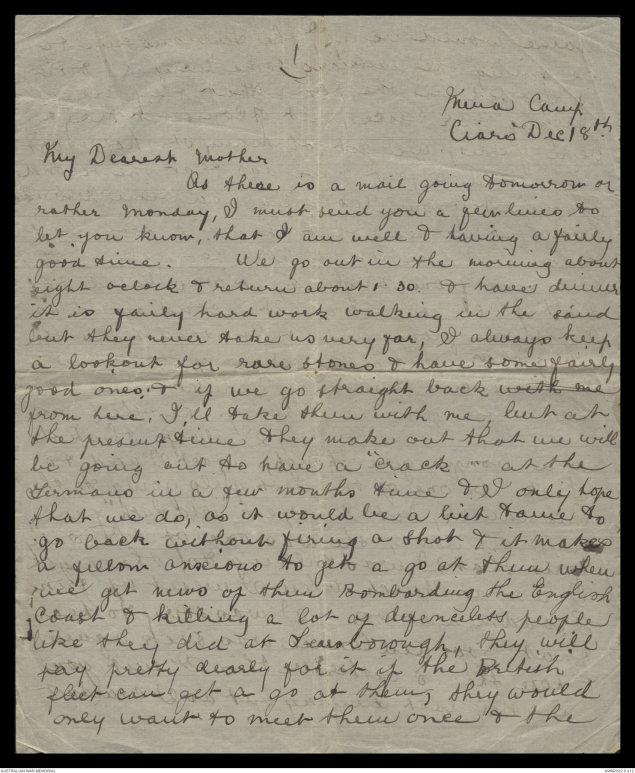 1
Mena Camp
Ciaro Dec 18th
My Dearest Mother
As there is a mail going tomorrow or
rather Monday, I must send you a few lines to
let you know, that I am well & having a fairly
good time. We go out in the morning about
eight oclock & return about 1.30. & have dinner
it is fairly hard work walking in the sand
but they never take us very far, I always keep
a lookout for rare stones & have some fairly
good ones, & if we go straight back with me
from here, I'll take them with me, but at
the present time they make out that we will
be going out to have a "crack" at the
Germans in a few months time & I only hope
that we do, as it would be a bit tame to
go back without firing a shot & it makes
a fellom anxious to get a go at them when
we get news of them Bombarding the English
Coast & killing a lot of defenceless people
like they did at Scarsborough, they will
pay pretty dearly for it if the British
fleet can get a go at them, they would
only want to meet them once & the
AUSTRALIAN WAR MEMORIAL